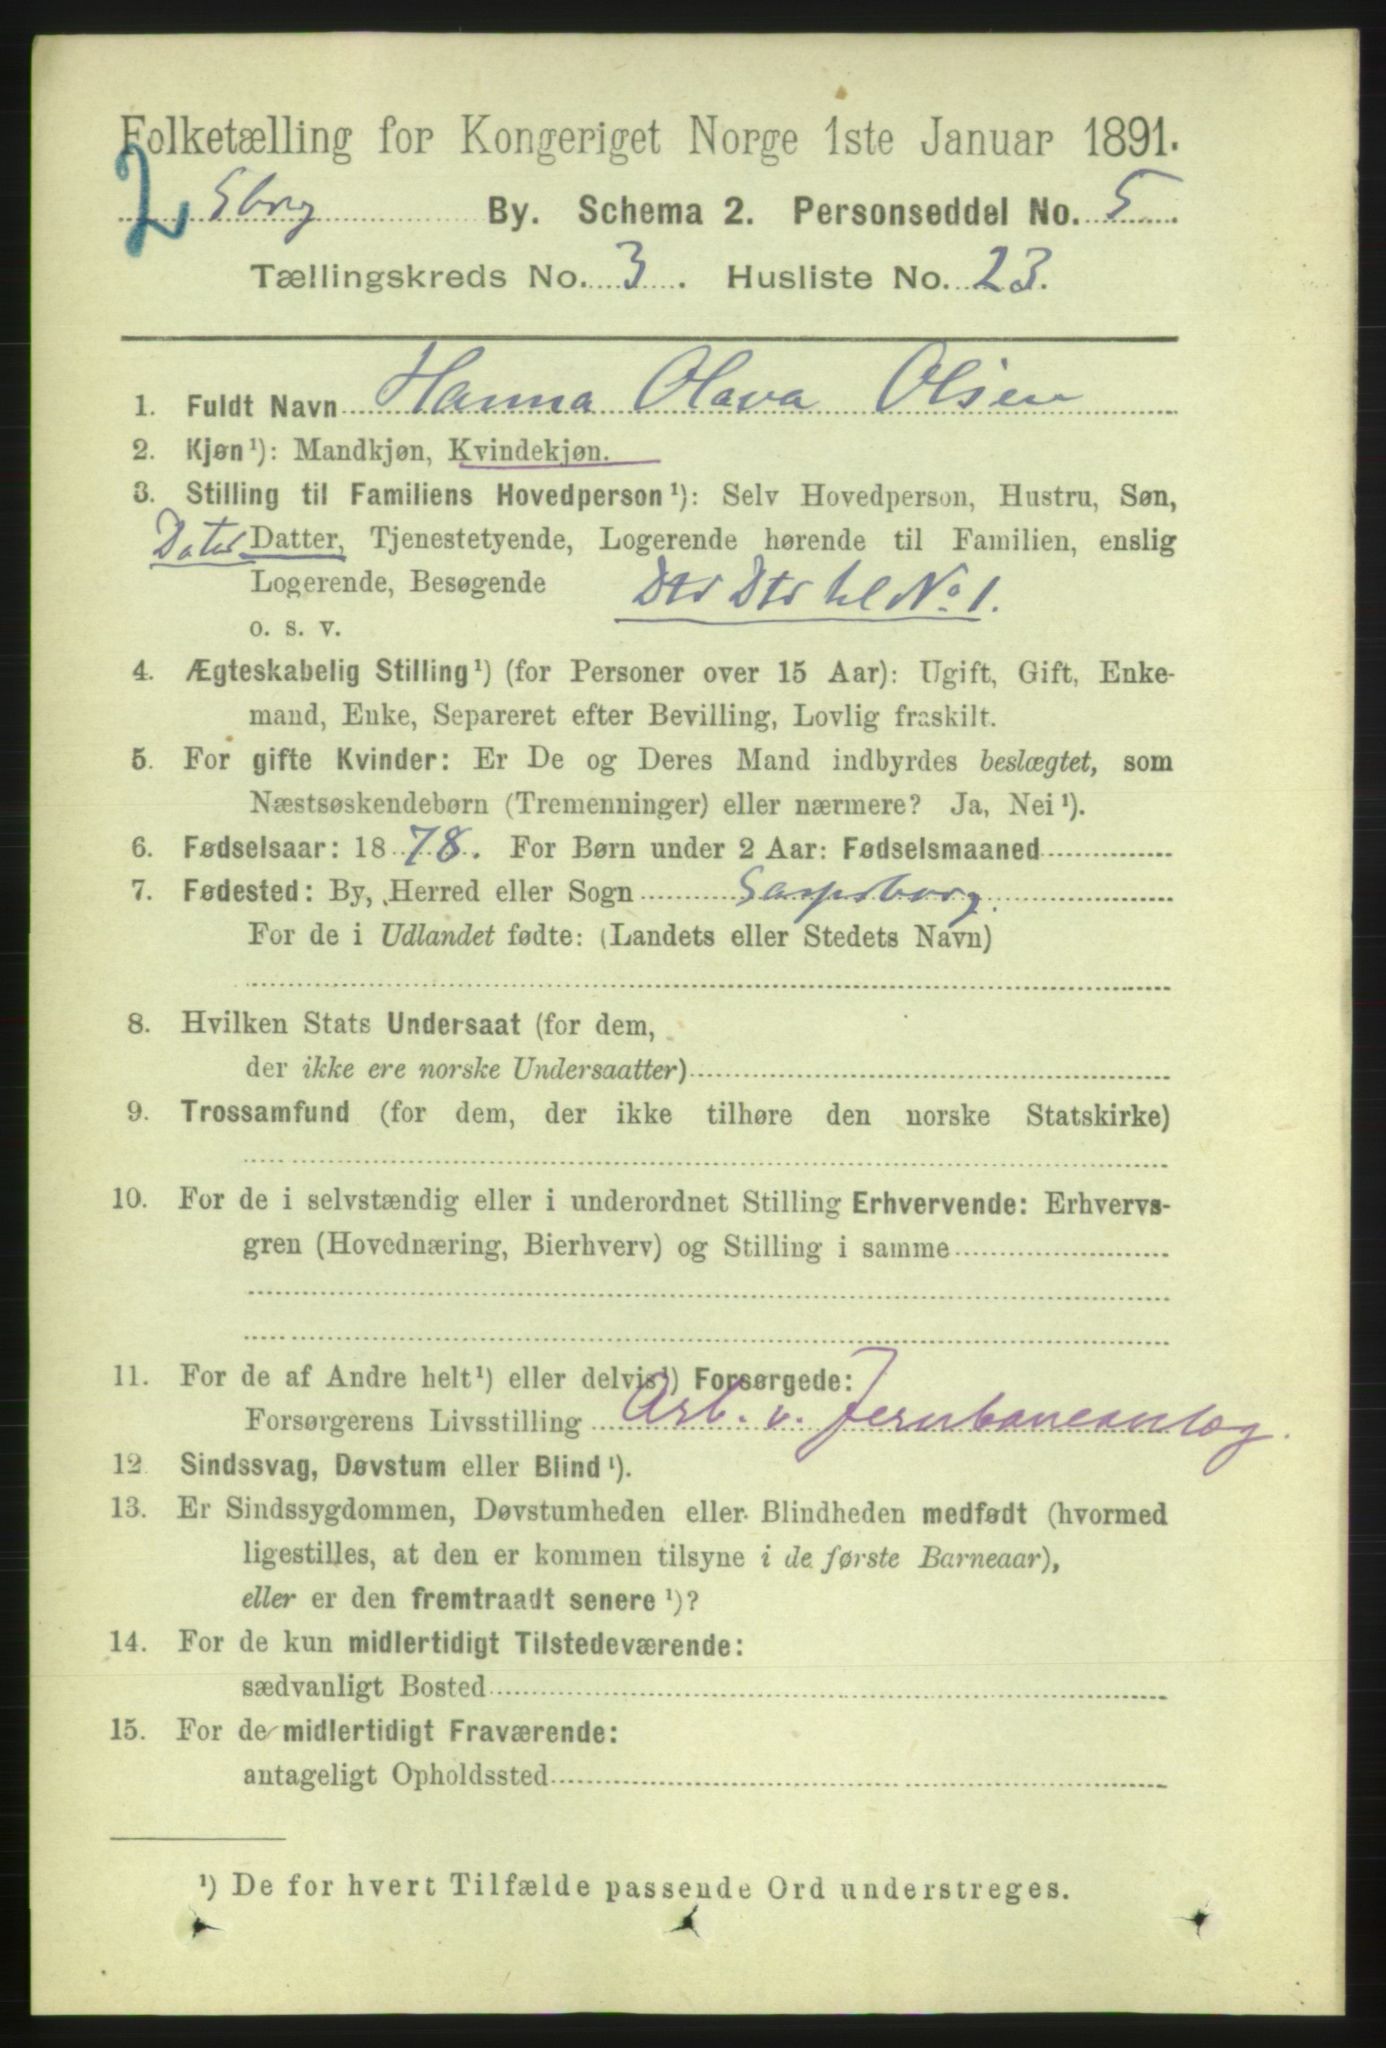 Folketælling for Kongeriget Norge 1ste Januar 1891.
2 Sborg By. Schema 2. Personseddel No. 5
Tællingskreds No. 3. Husliste No. 23.
1. Fuldt Navn Hanna Olava Olsen
2. Kjøn¹): Mandkjøn, Kvindekjøn.
3. Stilling til Familiens Hovedperson¹): Selv Hovedperson, Hustru, Søn,
Datter, Tjenestetyende, Logerende hørende til Familien, enslig
Logerende, Besøgende Dtr Dtr til No. 1.
o. s. v.
4. Ægteskabelig Stilling¹) (for Personer over 15 Aar): Ugift, Gift, Enke-
mand, Enke, Separeret efter Bevilling, Lovlig fraskilt.
5. For gifte Kvinder: Er De og Deres Mand indbyrdes beslægtet, som
Næstsøskendebørn (Tremenninger) eller nærmere? Ja, Nei¹).
6. Fødselsaar: 1878. For Børn under 2 Aar: Fødselsmaaned
7. Fødested: By, Herred eller Sogn Sarpsborg.
For de i Udlandet fødte: (Landets eller Stedets Navn)
8. Hvilken Stats Undersaat (for dem,
der ikke ere norske Undersaatter)
9. Trossamfund (for dem, der ikke tilhøre den norske Statskirke)
10. For de i selvstændig eller i underordnet Stilling Erhvervende: Erhvervs-
gren (Hovednæring, Bierhverv) og Stilling i samme
11. For de af Andre helt¹) eller delvis¹) Forsørgede:
Forsørgerens Livsstilling Arb. v. Jernbaneanlæg.
12 Sindssvag, Døvstum eller Blind¹).
13. Er Sindssygdommen, Døvstumheden eller Blindheden medfødt (hvormed
ligestilles, at den er kommen tilsyne i de første Barneaar),
eller er den fremtraadt senere¹)?
14. For de kun midlertidigt Tilstedeværende:
sædvanligt Bosted
15. For de midlertidigt Fraværende:
antageligt Opholdssted
¹) De for hvert Tilfælde passende Ord understreges.